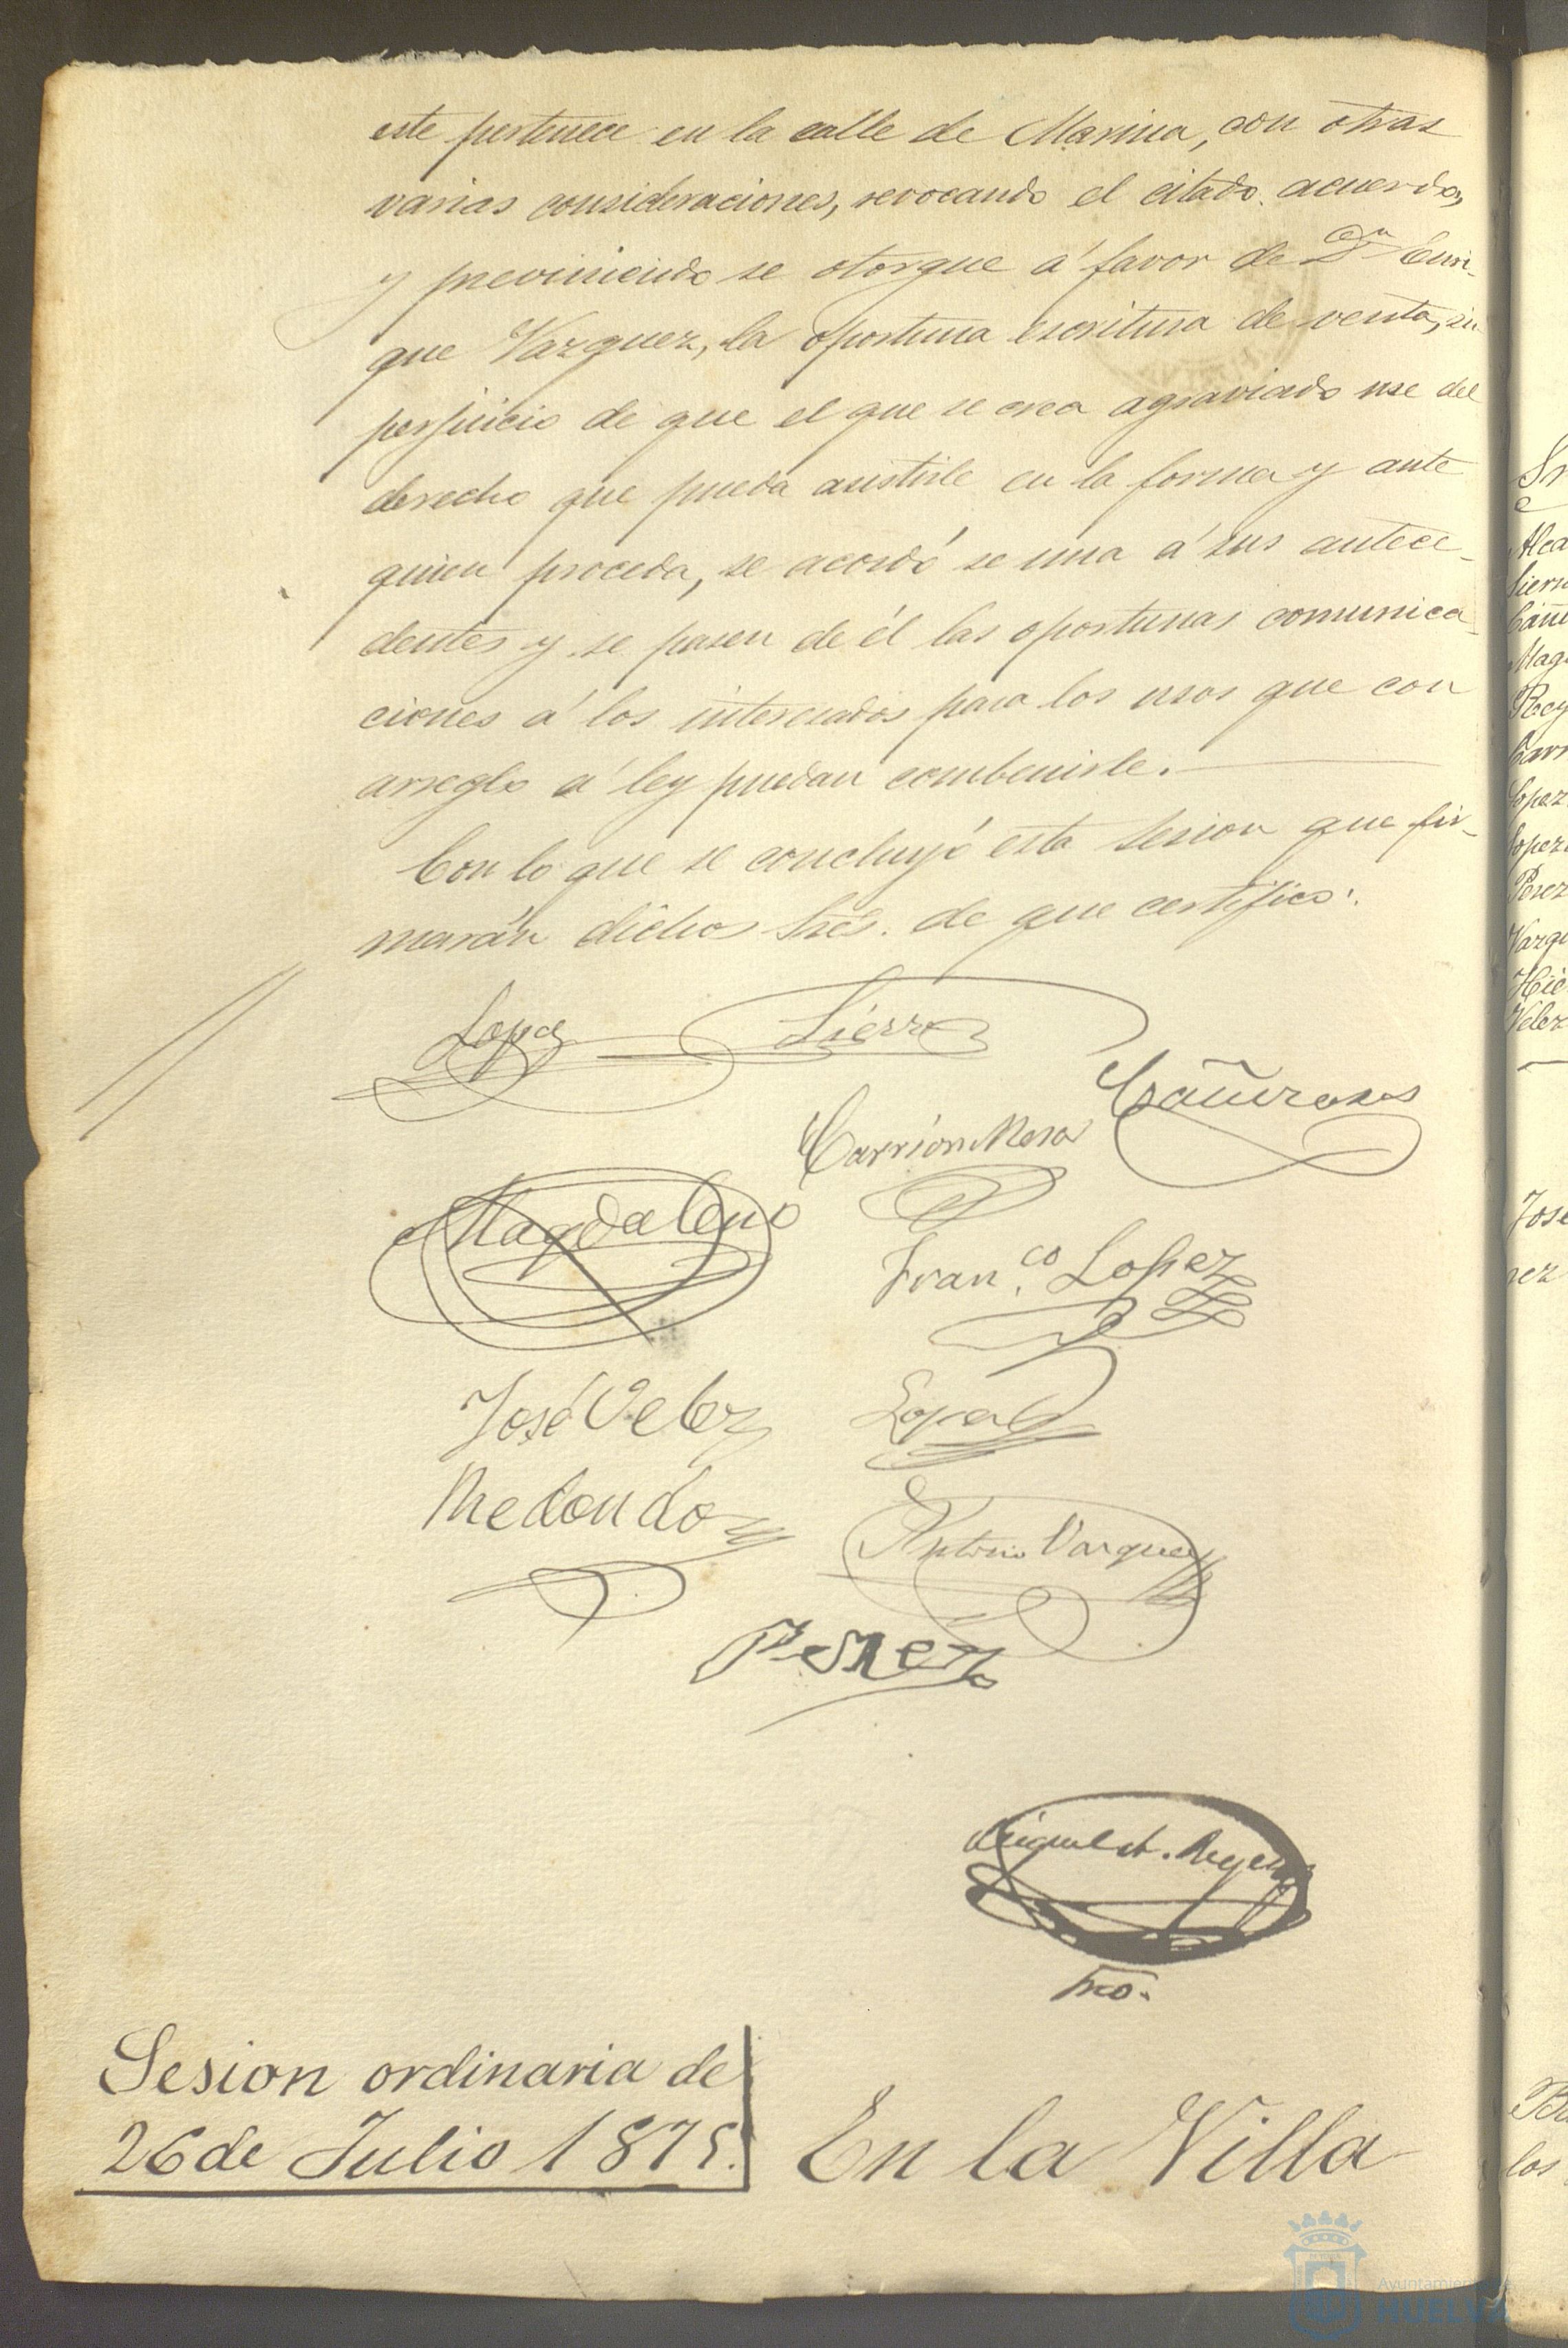 este pertenece en la calle de Marina, con otras
varias consideraciones, revocando el citado acuerdo,
y previniendo se otorgue á favor de Dn Enri-
que Vazquez, la oportuna escritura de venta, sin
perjuicio de que el que se crea agraviado use del
derecho que pueda asistirle en la forma y ante
quien proceda, se acordó se una á sus antece-
dentes y se pasen de él las oportunas comunica-
ciones á los interesados para los usos que con
arreglo á ley puedan combenirle.
Con lo que se concluyó esta sesion que fir-
marán dichos Sres. de que certifico.
Lopez Sierra
Cañizares
Carrion Mesa
Magdaleno
Fran.co Lopez
José Velez
Lopez
Redondo
Antonio Vazquez
Perez
Miguel A. Reyes
Srio.
Sesion ordinaria de
26 de Julio 1875.
En la Villa
Ayuntamiento de
HUELVA
Alca
Sierra
Cañi
Mag
Carr
Lopez
Lopez
Perez
Vazqu
Velez
Jose
los